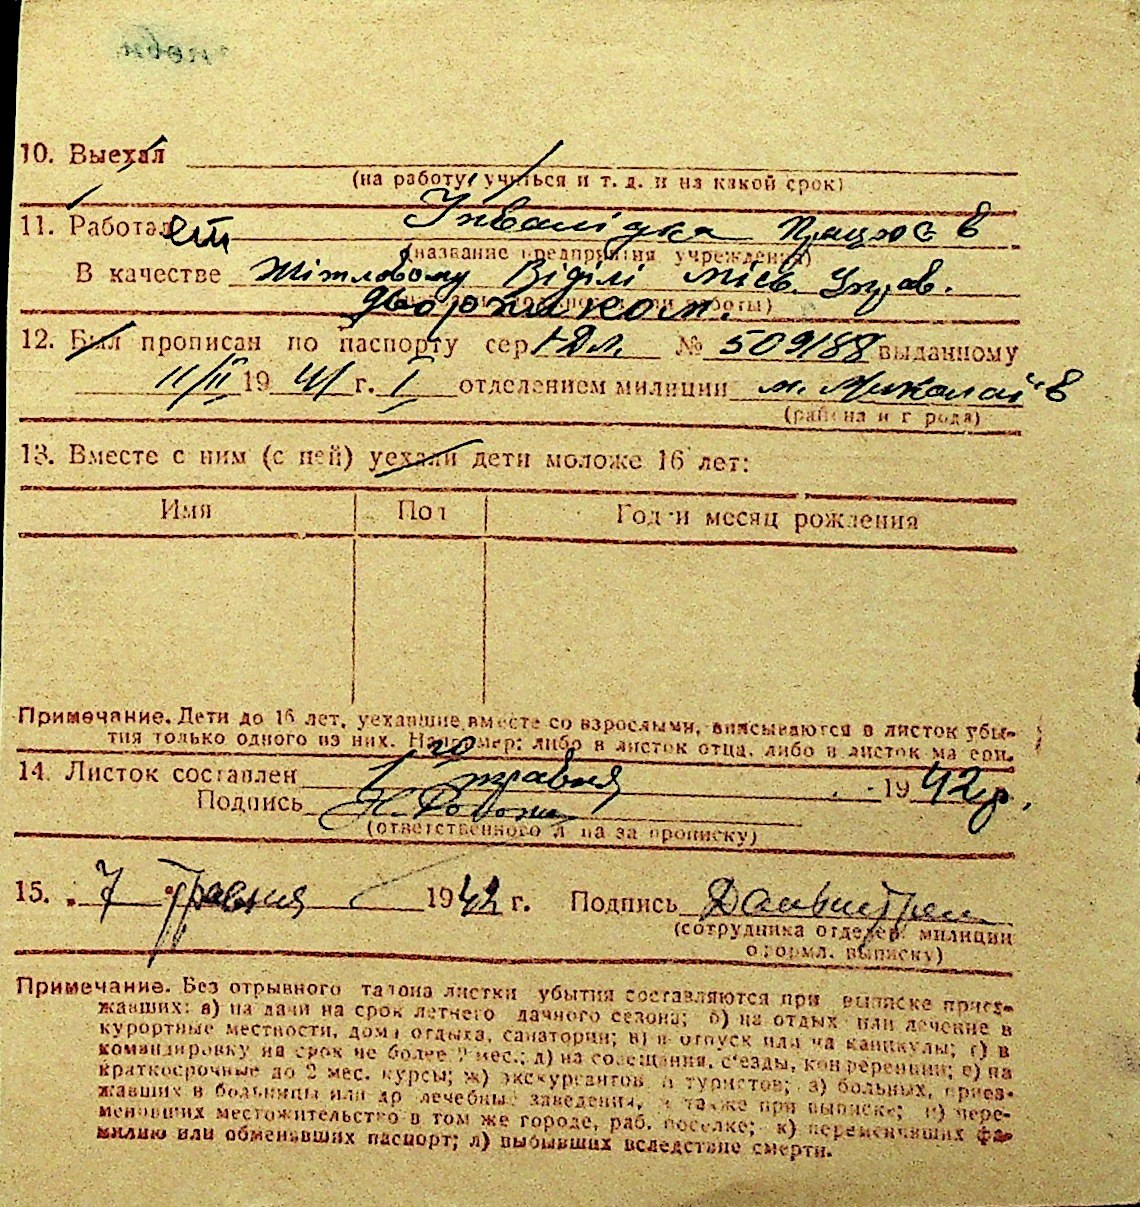 10. Выехал
(на работу, учиться и т. д. и на какой срок)
11. Работает Інвалідка працює в
(название предприятия учреждения)
В качестве Житловому Віділі міськ. Управ.
двірником.
12. Был прописан по паспорту сер. № 509188 выданному
11/II 1941 г. I отделением милиции м. Миколаїв
(района и города)
13. Вместе с ним (с ней) уехали дети моложе 16 лет:
Имя Пол Год и месяц рождения
Примечание. Дети до 16 лет, уехавшие вместе со взрослыми, вписываются в листок убы-
тия только одного из них. Например: либо в листок отца, либо в листок матери.
14. Листок составлен травня 1942 р.
Подпись
(ответственного лица за прописку)
15. 7 травня 1942 г. Подпись
(сотрудника отделен. милиции
оформл. выписку)
Примечание. Без отрывного талона листки убытия составляются при выписке приез-
жавших: а) на дачи на срок летнего дачного сезона; б) на отдых или лечение в
курортные местности, дома отдыха, санатории; в) в отпуск или на каникулы; г) в
командировку на срок не более 2 мес.; д) на совещания, с'езды, конференции; е) на
краткосрочные до 2 мес. курсы; ж) экскурсантов и туристов; з) больных, приез-
жавших в больницы или др лечебные заведения, а также при выписке; и) пере-
менивших местожительство в том же городе, раб. поселке; к) переменивших фа-
милию или обменявших паспорт; л) выбывших вследствие смерти.